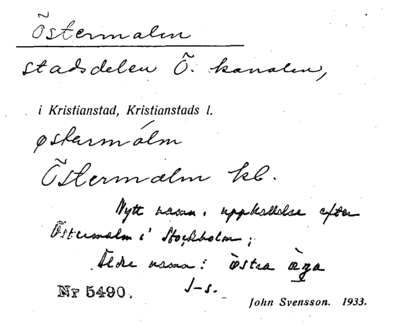 Östermalm
stadsdelen Ö. kanalen,
i Kristianstad, Kristianstads l.
østərmálm
Östermalm kb.
Nytt namn, uppkallelse efter
Östermalm i Stockholm;
Äldre namn: östra æga
Nr 5490. J-s.
John Svensson. 1933.